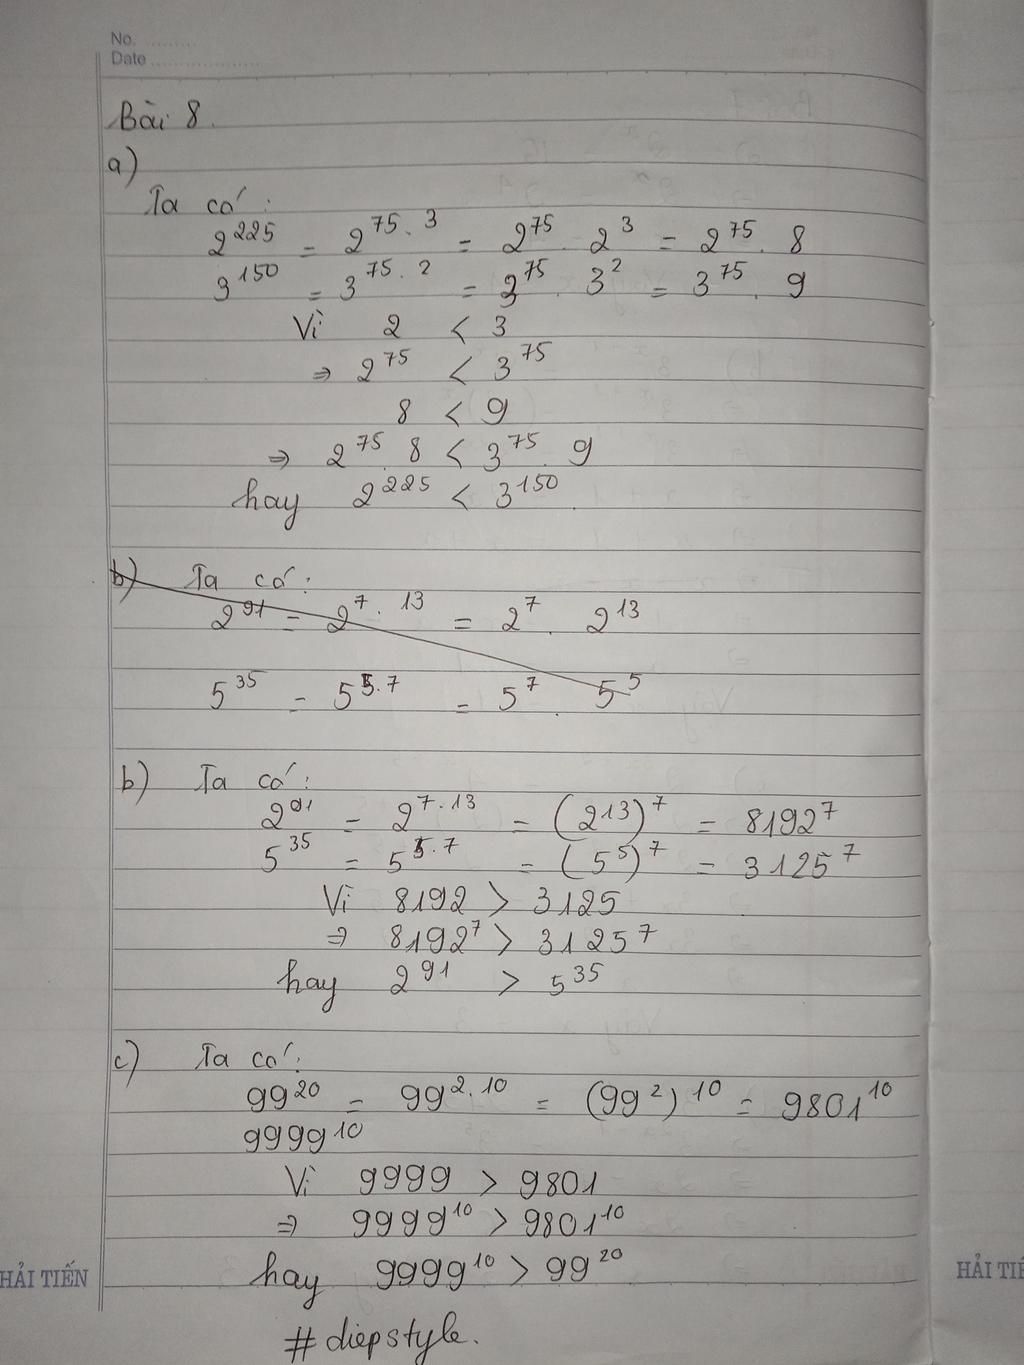 No. ..........
Date ....................
Bài 8.
a)
Ta có:
2^225 = 2^75.3 = 2^75 . 2^3 = 2^75 . 8
3^150 = 3^75.2 = 3^75 . 3^2 = 3^75 . 9
Vì 2 < 3
⇒ 2^75 < 3^75
8 < 9
⇒ 2^75 . 8 < 3^75 . 9
hay 2^225 < 3^150.
b) Ta có:
2^91 = 2^7.13 = 2^7 . 2^13
5^35 = 5^5.7 = 5^7 . 5^5
b) Ta có:
2^91 = 2^7.13 = (2^13)^7 = 8192^7
5^35 = 5^5.7 = (5^5)^7 = 3125^7
Vì 8192 > 3125
⇒ 8192^7 > 3125^7
hay 2^91 > 5^35
c) Ta có:
99^20 = 99^2.10 = (99^2)^10 = 9801^10
9999^10
Vì 9999 > 9801
⇒ 9999^10 > 9801^10
hay 9999^10 > 99^20
HẢI TIẾN
HẢI TIẾ
#diepstyle.